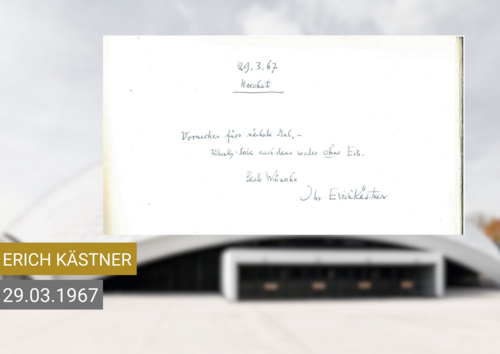 29.3.67
Hoechst
Vormerken fürs nächste Mal, –
dann wieder ohne Eis.
Beste Wünsche
Ihr Erich Kästner
ERICH KÄSTNER
29.03.1967